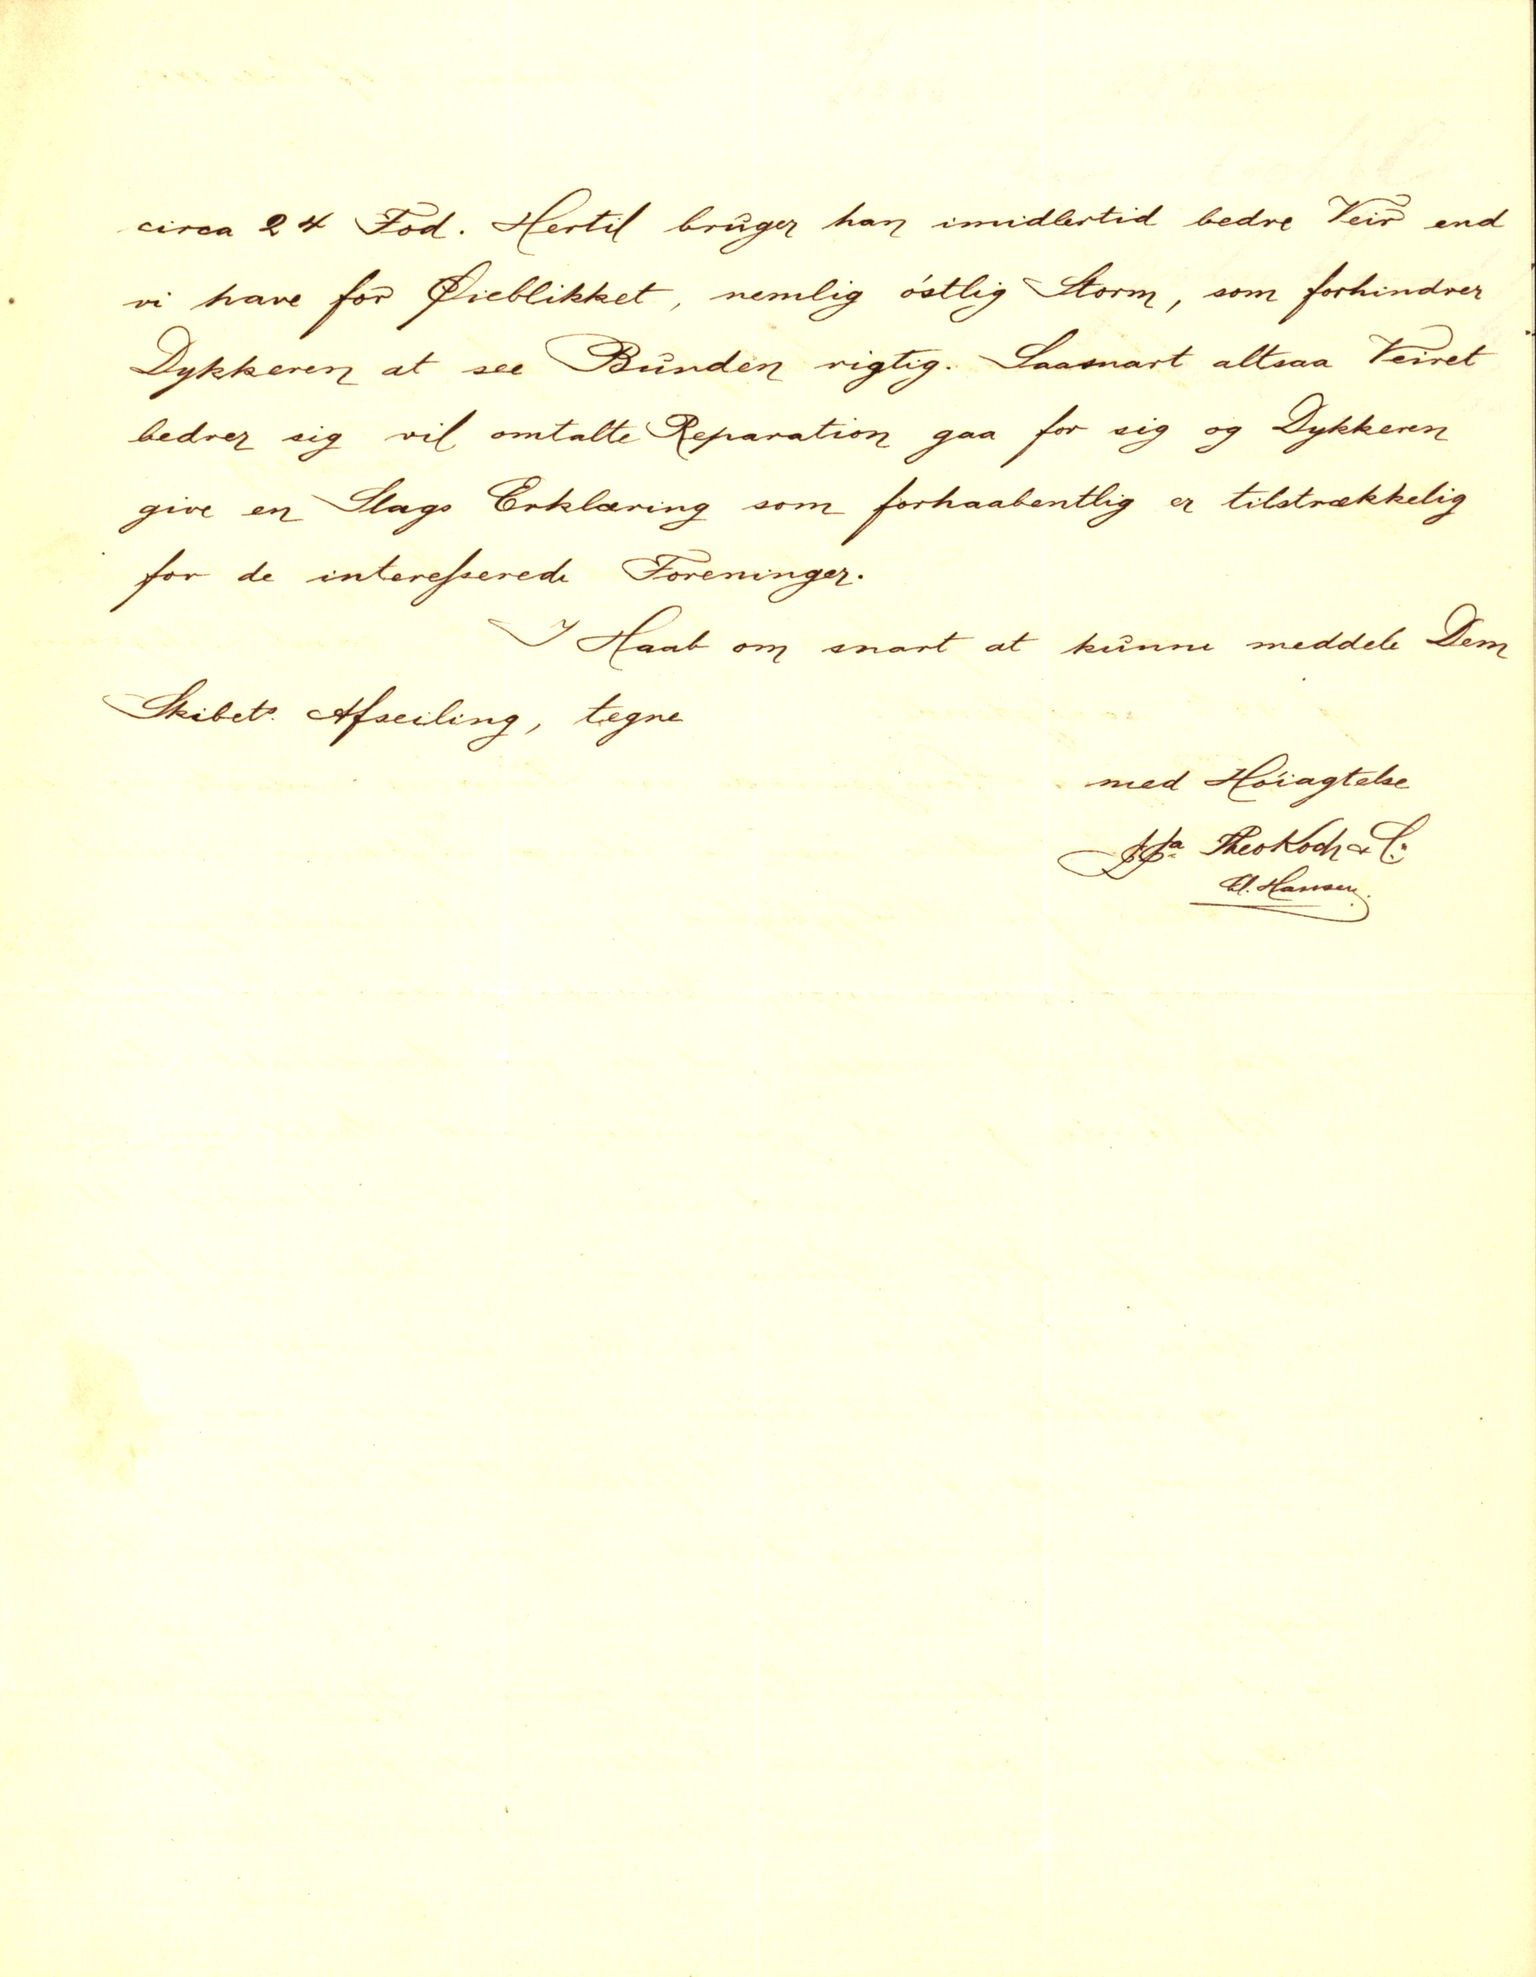 circa 24 Fod. Hertil bruger han imidlertid bedre Veir end
vi have for Øieblikket, nemlig östlig Storm, som forhindrer
Dykkeren at see Bunden rigtig. Saasnart altsaa Veiret
bedrer sig vil omtalte Reparation gaa for sig og Dykkeren
give en Slags Erklæring som forhaabentlig er tilstrækkelig
for de interesserede Foreninger.
I Haab om snart at kunne meddele Dem
Skibets Afseiling, tegne
med Höiagtelse
ppa Theo Koch & Co
Hansen